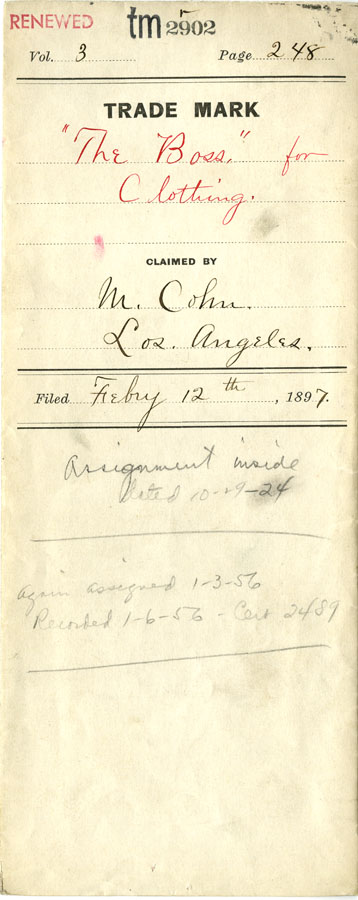 RENEWED tm 2902
Vol. 3 Page 248
TRADE MARK
"The Boss," for
Clothing.
CLAIMED BY
M. Cohn.
Los. Angeles.
Filed Febry 12th, 1897.
Assignment inside
dated 10-29-24
Again assigned 1-3-56
Recorded 1-6-56 - Cert 2489